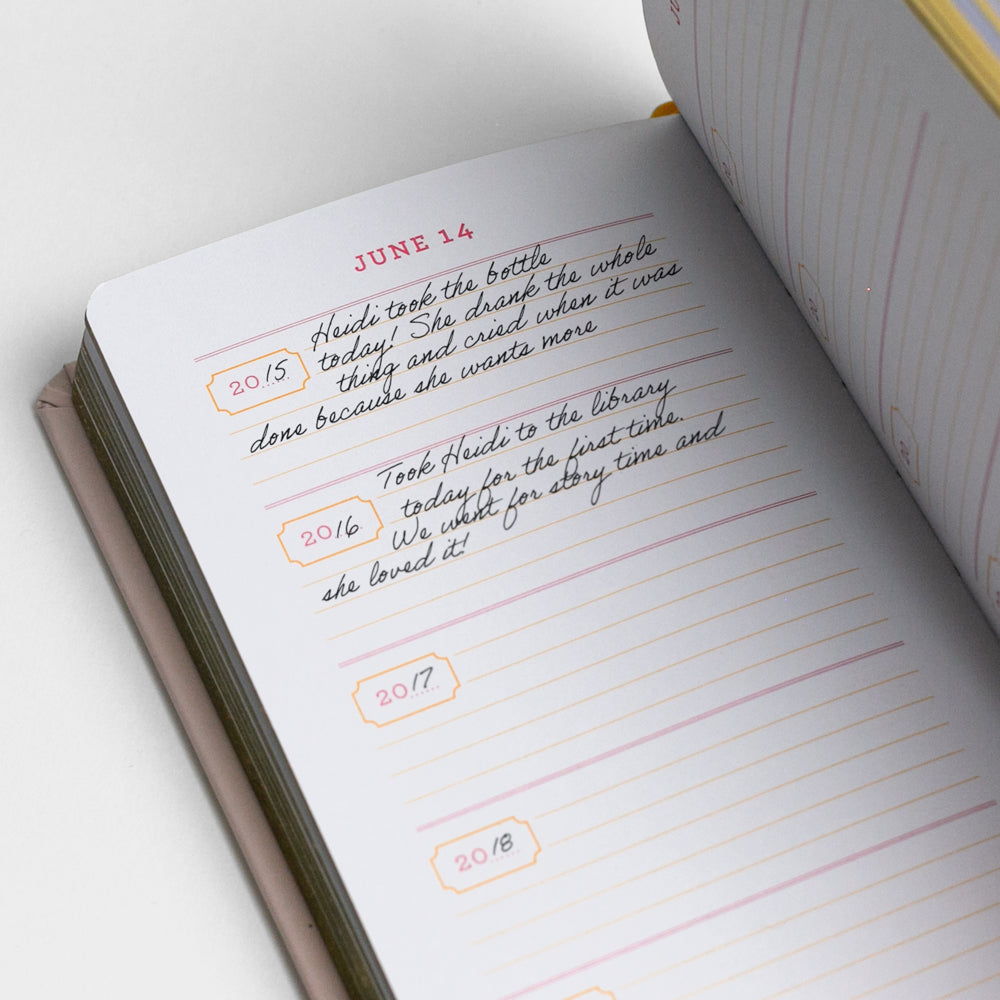 JUNE 14
Heidi took the bottle
today! She drank the whole
thing and cried when it was
2015
done because she wants more
Took Heidi to the library
today for the first time.
2016
We went for story time and
she loved it!
2017
2018